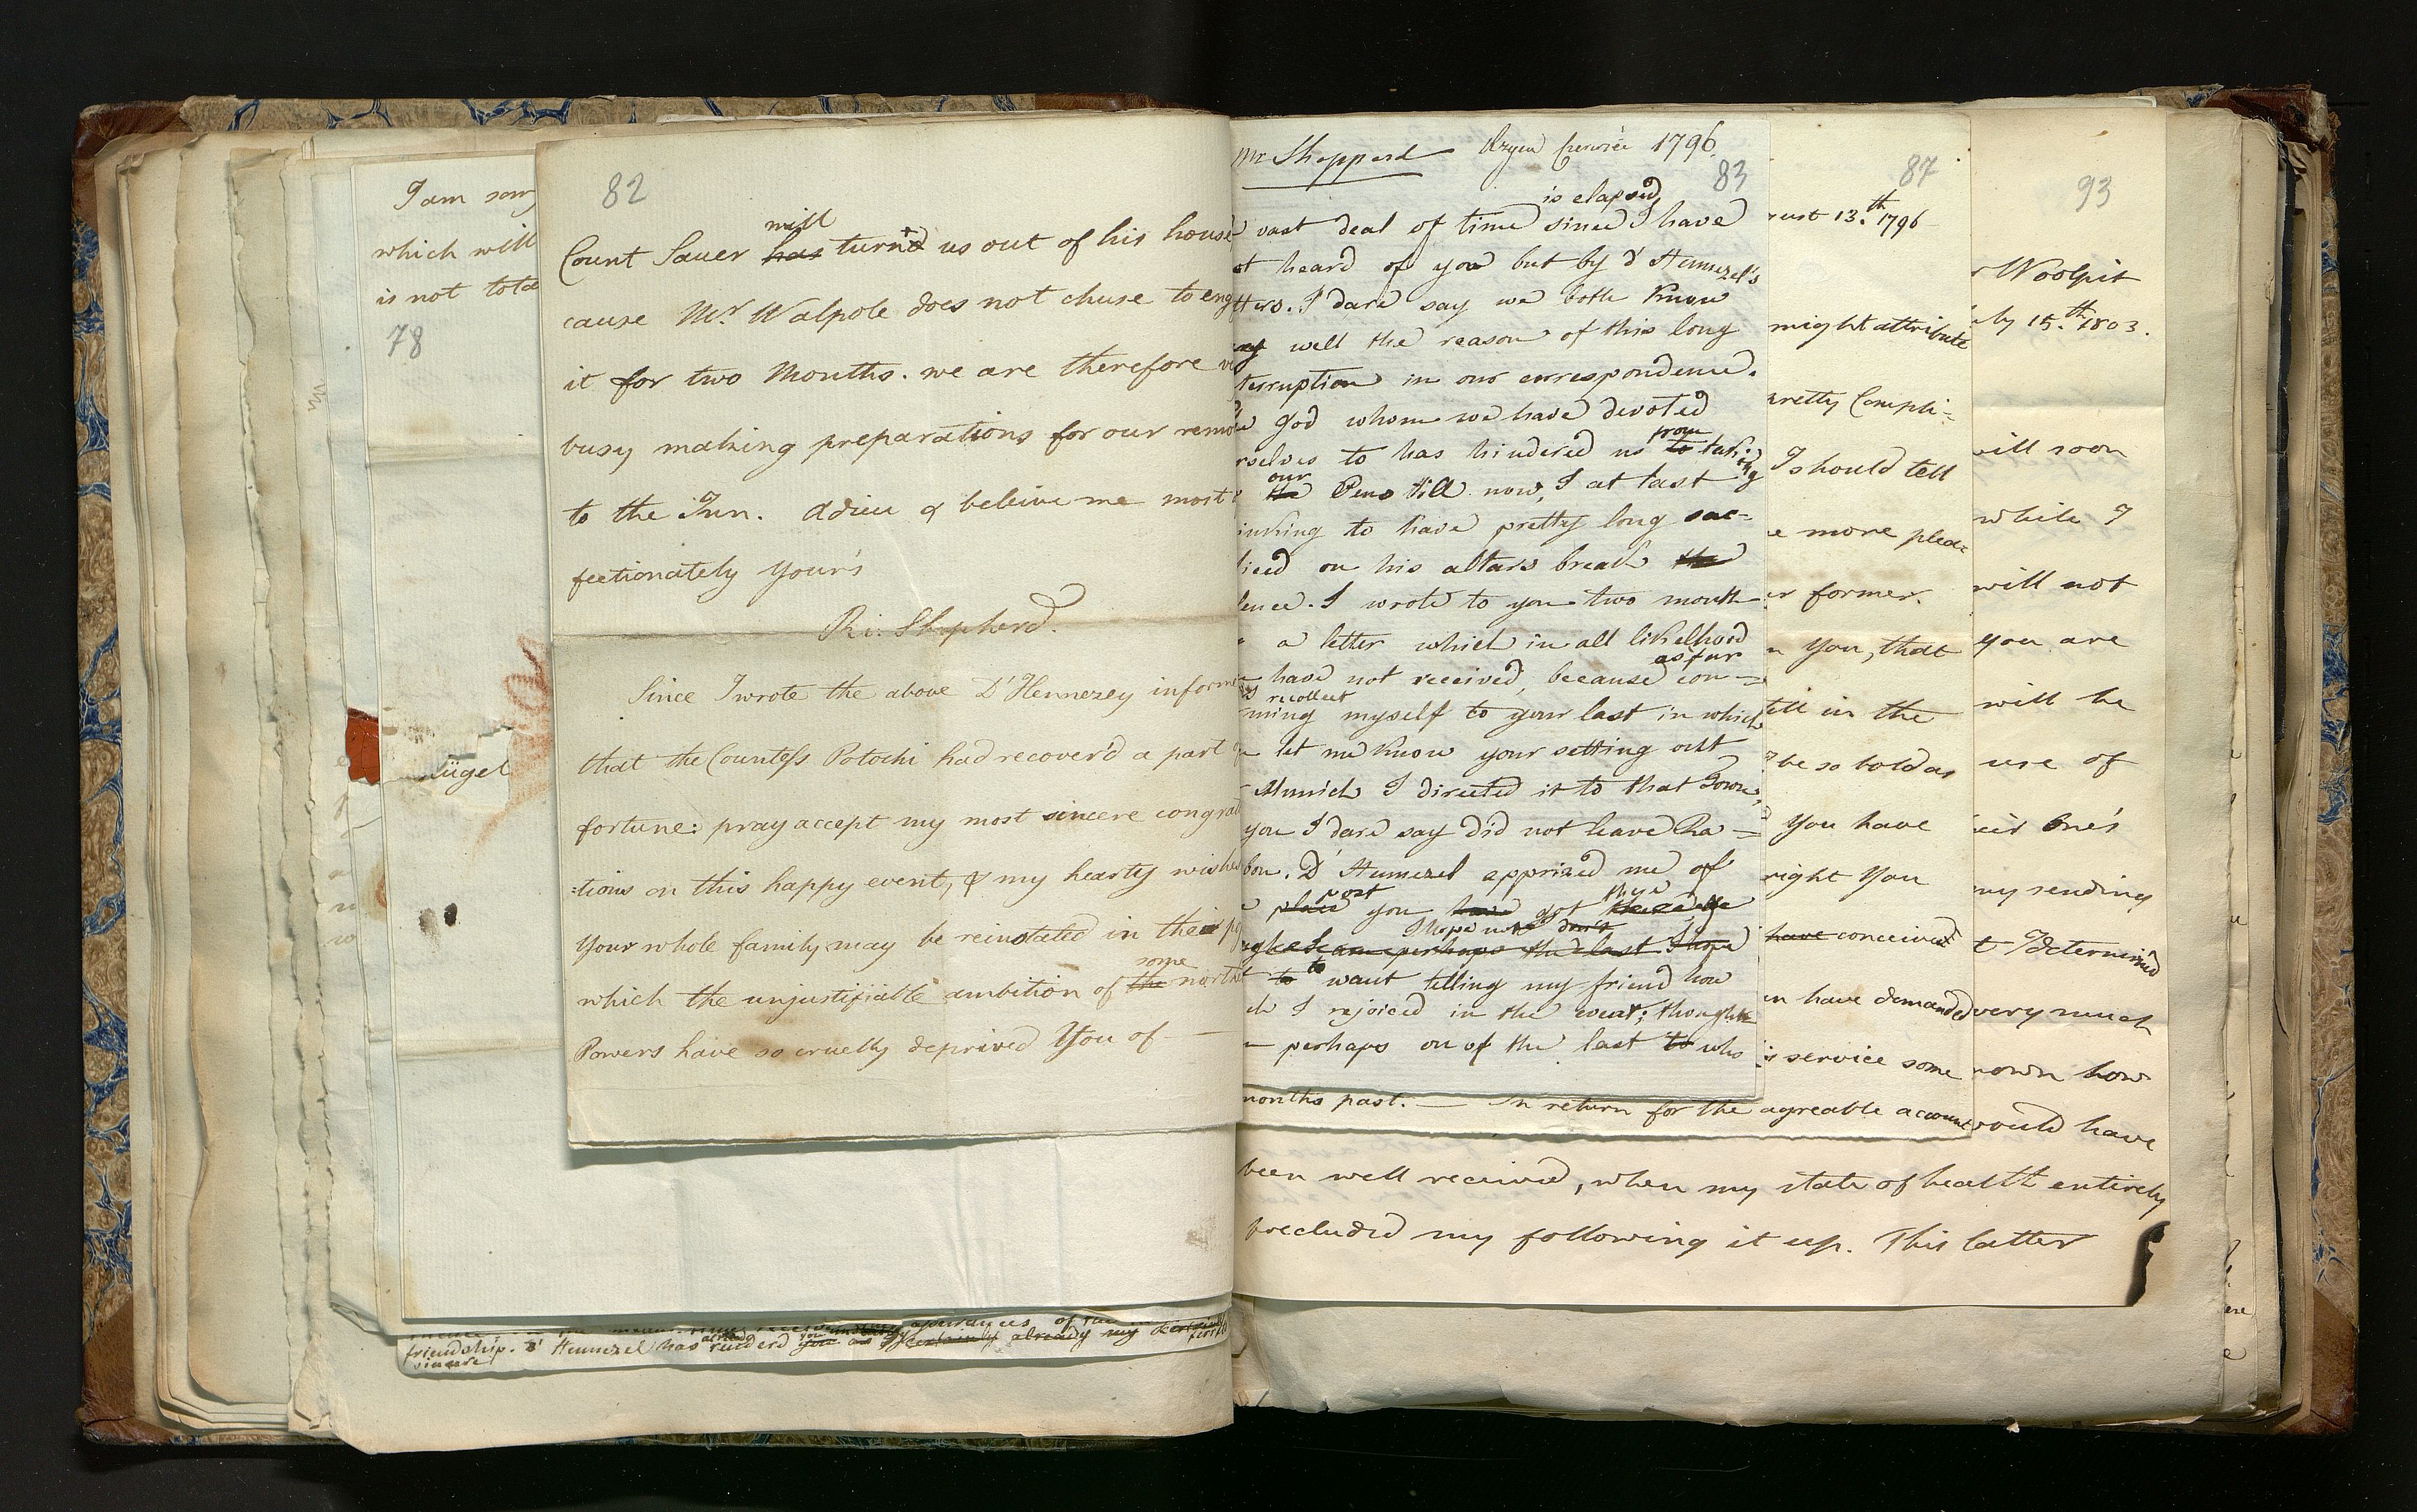 I am sorry
which will
is not tota
78
ügel
82
will
Count Sauer has turn'd us out of his house
cause Mr. Walpole does not chuse to eng
it for two Months. we are therefore
busy making preparations for our remo
to the Inn. Adieu & beleive me most
fectionately Your's
Ri: Shepherd.
Since I wrote the above D'Hennezey inform
that the Countess Potochi had recover'd a part
fortune: pray accept my most sincere congrat
=tions on this happy event, & my hearty wishes
Your whole family may be reinstated in their
some
which the unjustifiable ambition of the north
Powers have so cruelly deprived You of
friendship. d'Hennezel has already renderd
sincere
Mr Sheppard 1796
83
is elapsed
vast deal of time since I have
ot heard of you but by d'Hennezel's
tters. I dare say we both know
well the reason of this long
terruption in our correspondence.
god whom we have devoted
from
rselves to has hindered us to taking
our
the Pens till now, I at last
inking to have pretty long sac=
ficed on his altars break the
lence. I wrote to you two month
a letter which in all likelhood
as far
have not received, because con=
recollect
rming myself to your last in which
let me know your setting out
Munich I directed it to that Town,
you I dare say did not leave Ra=
bon. D'Hennezel apprized me of
post
place you have got
I hope
I am perhaps the last I hope
to want telling my friend how
ch I rejoiced in the event; though
perhaps on of the last to who
87
ust 13.th 1796
might attribute
pretty Compli=
I should tell
e more plea=
er former.
n You, that
till in the
be so bold as
You have
right You
have conceived
en have demanded
is service some
months past. — In return for the agreable account
93
r Woolpit
uly 15.th 1803.
will soon
while I
will not
you are
will be
use of
eir One's
my sending
t I determin'd
very much
nown how
would have
been well received, when my state of health entirely
precluded my following it up. This latter